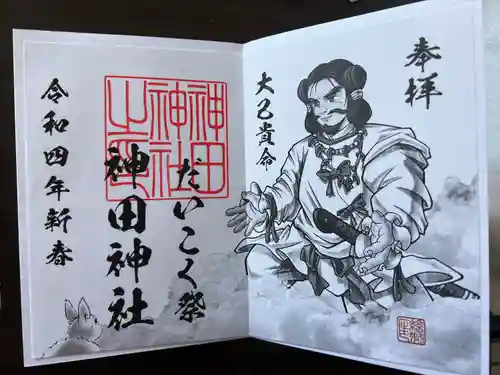 奉拝
大己貴命
だいこく祭
神田神社
神田神社之印
令和四年新春